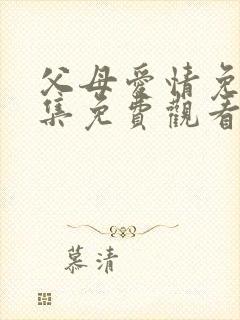 父母愛情免
集免費觀看
慕清